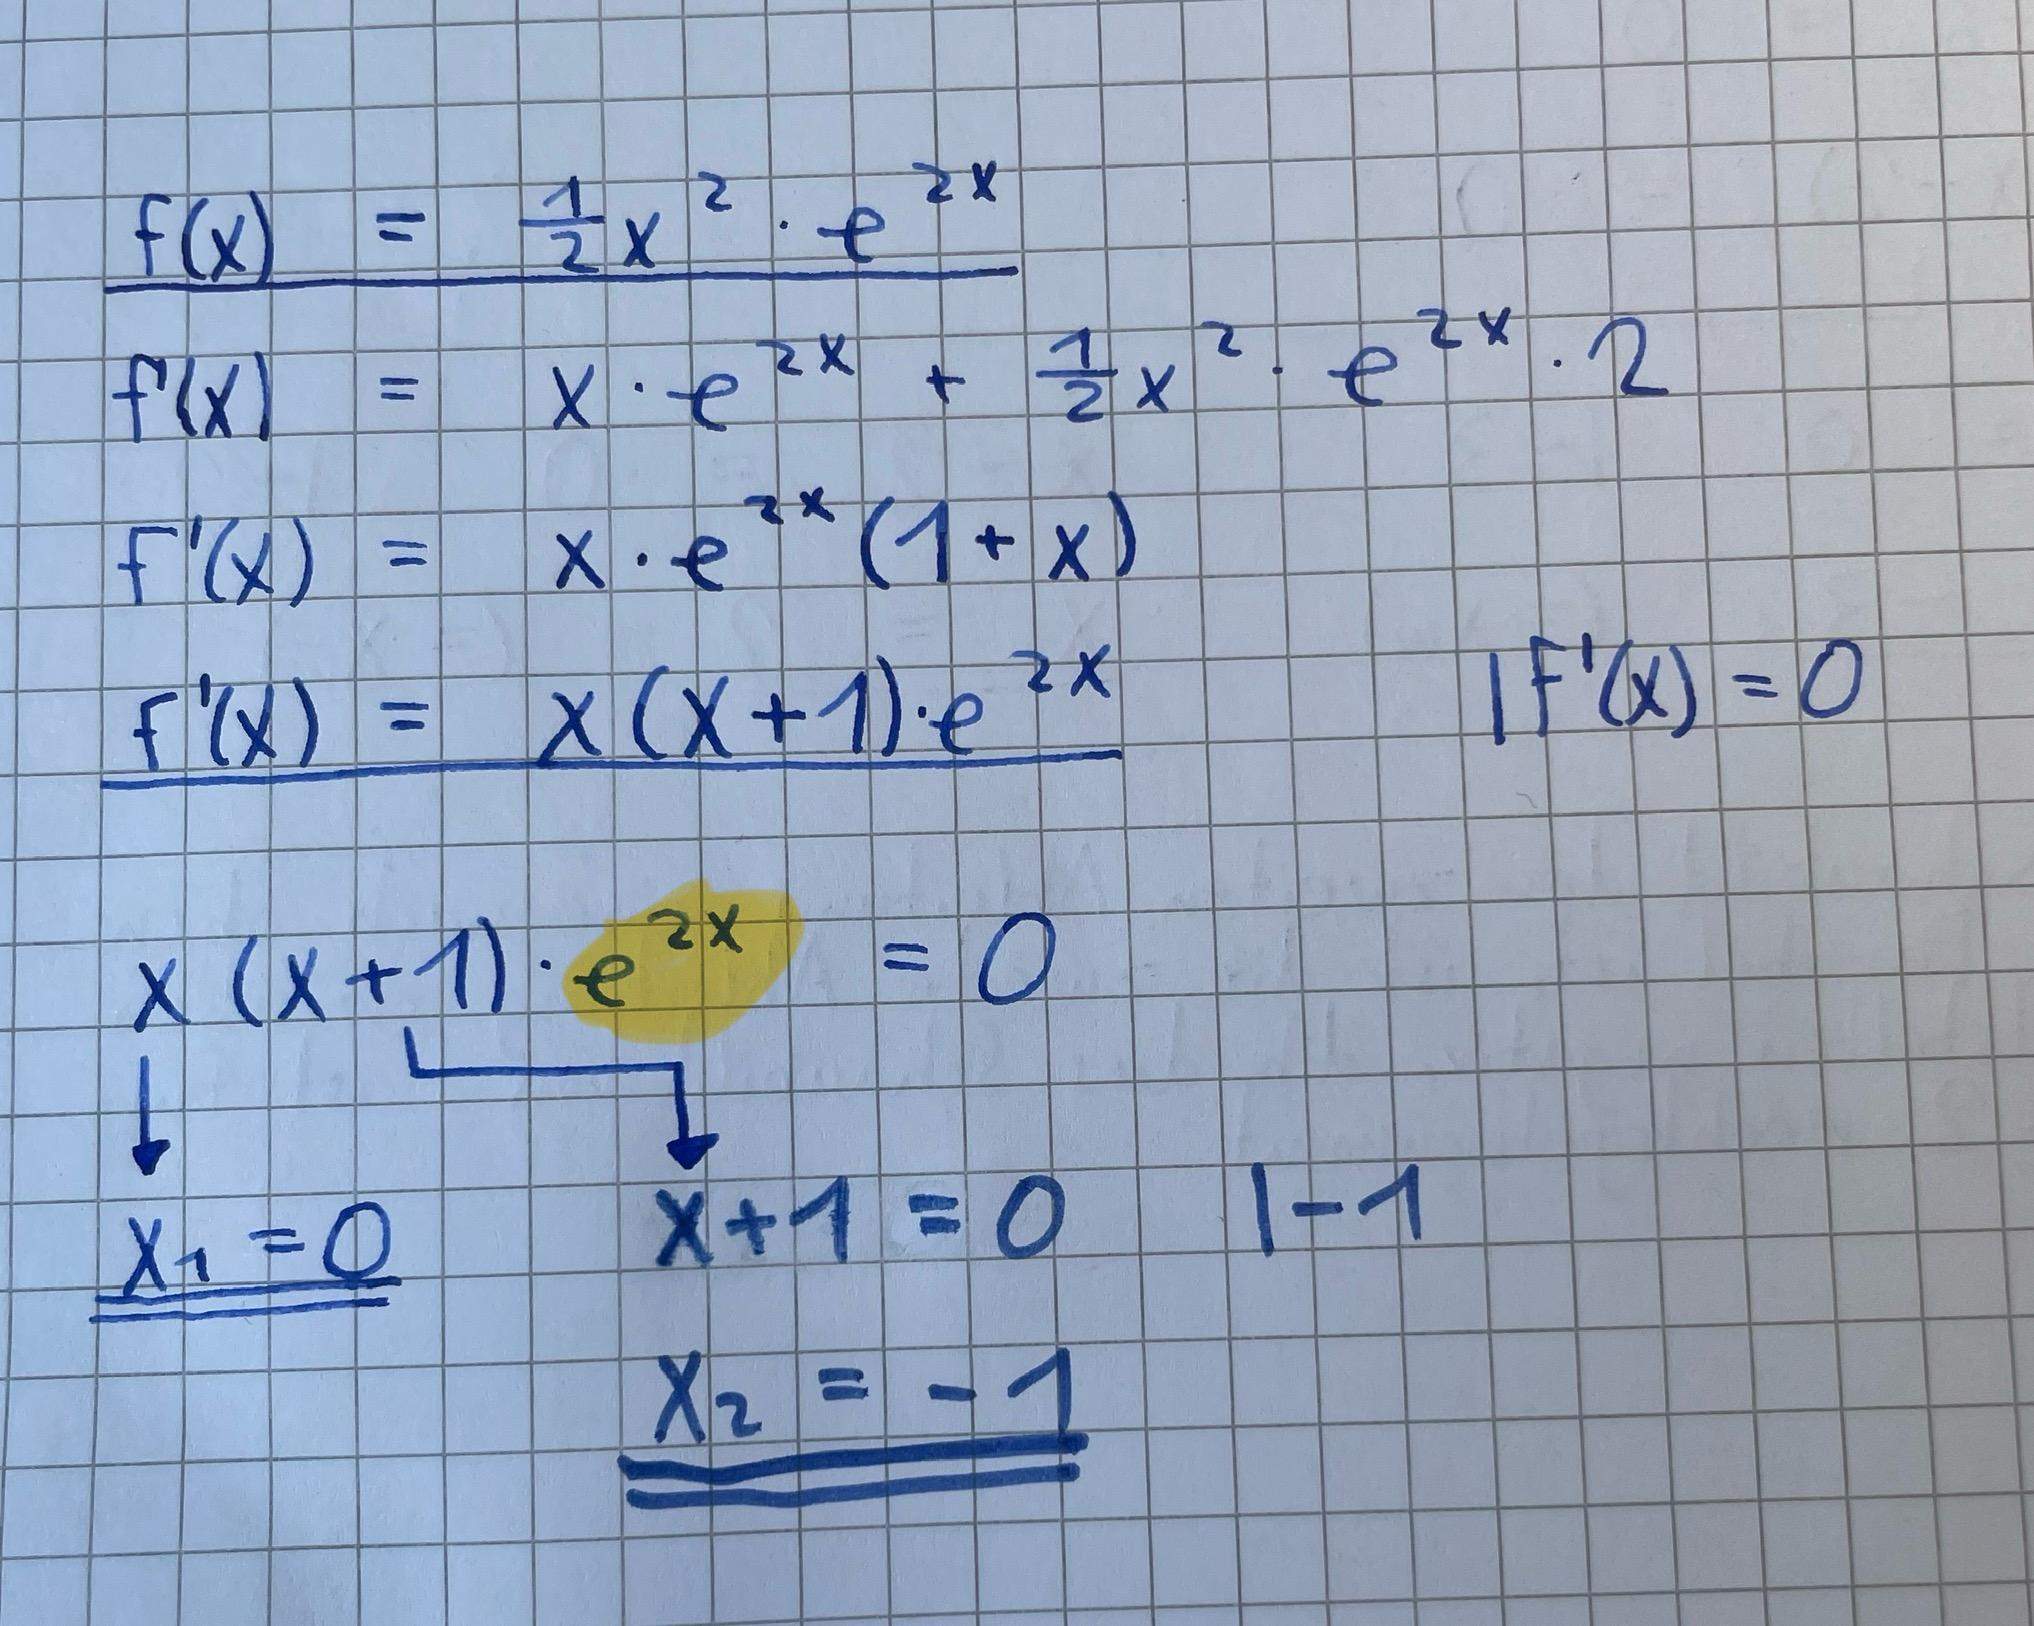 f(x) = 1/2 x² · e^2x
f'(x) = x · e^2x + 1/2 x² · e^2x · 2
f'(x) = x · e^2x (1 + x)
f'(x) = x (x + 1) · e^2x |f'(x) = 0
x (x + 1) · e^2x = 0
x₁ = 0 x + 1 = 0 |-1
x₂ = -1